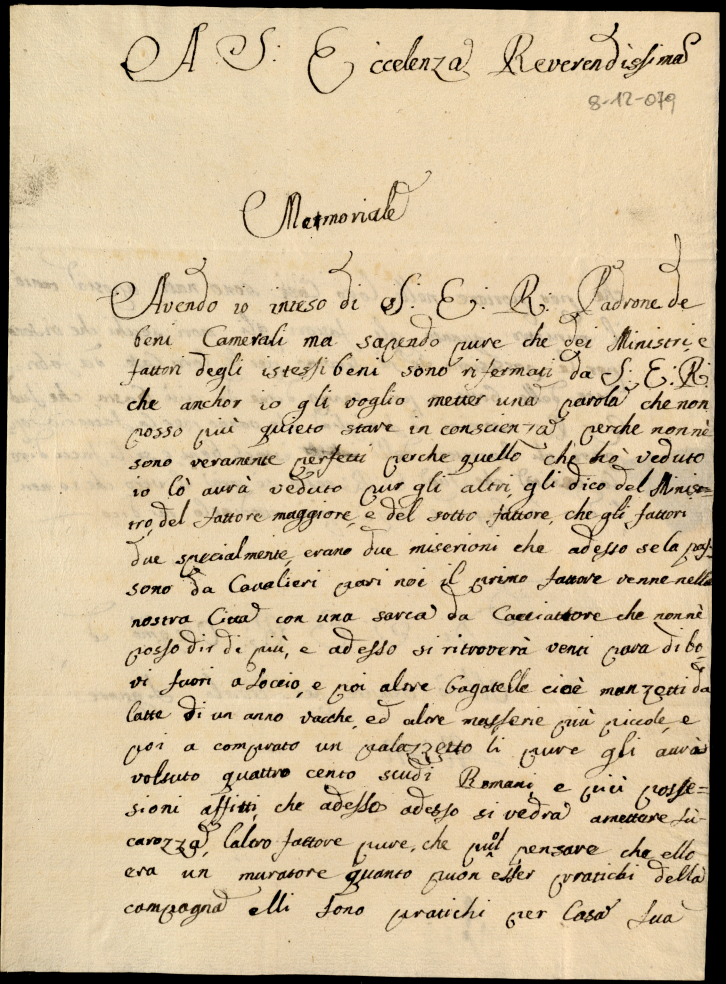 A S: Eccelenza Reverendissima
8-12-079
Memoriale
Avendo io inteso di S: E: R: Padrone de
beni Camerali ma sapendo pure che dei Ministri, e
fattori degli istessi beni sono rifermati da S: E: R:
che anchor io gli voglio metter una parola che non
posso più quieto stare in conscienza perche non nè
sono veramente perfetti perche quello che hò veduto
io lò avrà veduto pur gli altri, gli dico del Minis=
tro, del fattore maggiore, e del sotto fattore, che gli fattori
due specialmente, erano due miserioni che adesso se la pas=
sono da Cavalieri pari noi il primo fattore venne nella
nostra Città con una sarca da Cacciattore che non nè
posso dir di più, e adesso si ritroverà venti para di bo
vi fuori a Soccio, e poi altre bagatelle cioè manzetti da
latte di un anno vacche, ed altre masserie più piccole, e
poi a comprato un palazzetto li pure gli avrà
volsuto quattro cento scudi Romani, e più posse=
sioni affitti, che adesso adesso si vedrà a mettere sù
carozza, l'altro fattore pure, che può pensare che ello
era un muratore quanto puon esser pratichi della
compagna elli sono pratichi per Casa sua